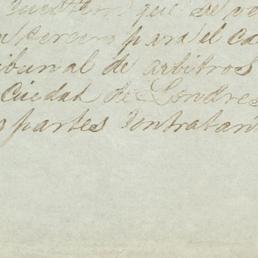 que se
para el ca
ibunal de arbitros
Ciudad de Londres
partes Contratan